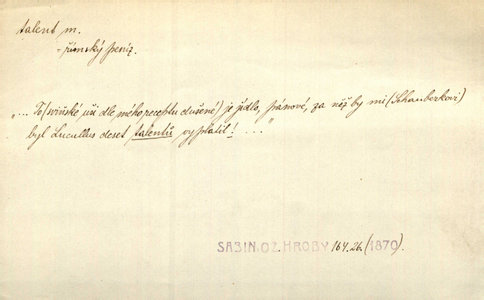 talent m.
- římský peníz.
„... To (sviňské uši dle mého receptu dušené) je jídlo, pánové, za něž by mi (Schauberkovi)
byl Lucullus deset talentů vyplatil! ..."
SABIN. OŽ. HROBY 164.26. (1870).